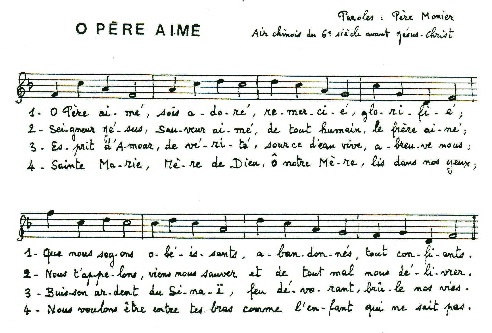 O PÈRE AIMÉ
Paroles : Père Monier
Air chinois du 6e siècle avant Jésus-Christ
1- O Père ai-mé, sois a-do-ré, re-mer-ci-é, glo-ri-fi-é;
2- Seigneur Jé-sus, Sau-veur ai-mé, de tout humain, le frère ai-né;
3- Es-prit d'A-mour, de vé-ri-té, source d'eau vive, a-breu-ve nous;
4- Sainte Ma-rie, Mè-re de Dieu, Ô notre Mè-re, lis dans nos yeux;
1- Que nous soy-ons o-bé-is-sants, a-ban-don-nés, tout con-fi-ants.
2- Nous t'appe-lons, viens nous sauver et de tout mal nous dé-li-vrer.
3- Buis-son ar-dent du Si-na-ï, feu dé-vo-rant, brû-le nos vies.
4- Nous voulons être entre tes bras comme l'en-fant qui ne sait pas.